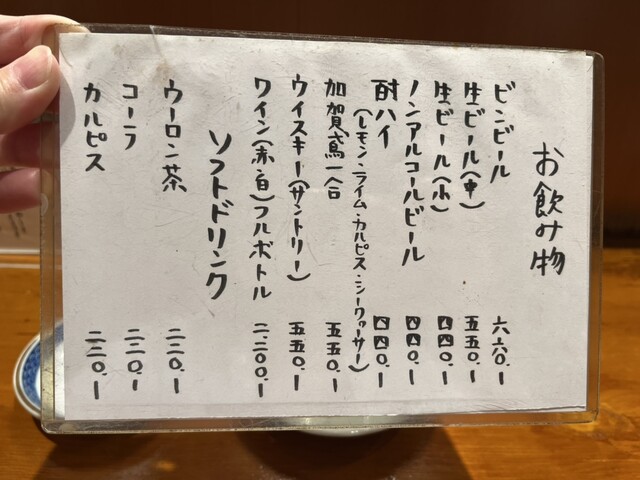 お飲み物
ビンビール 六六〇.ー
生ビール(中) 五五〇.ー
生ビール(小) 四四〇.ー
ノンアルコールビール 四四〇.ー
酎ハイ 四四〇.ー
(レモン・ライム・カルピス・シークヮーサー)
加賀鳶一合 五五〇.ー
ウイスキー(サントリー) 五五〇.ー
ワイン(赤・白)フルボトル 二.二〇〇.ー
ソフトドリンク
ウーロン茶 二二〇.ー
コーラ 二二〇.ー
カルピス 二二〇.ー